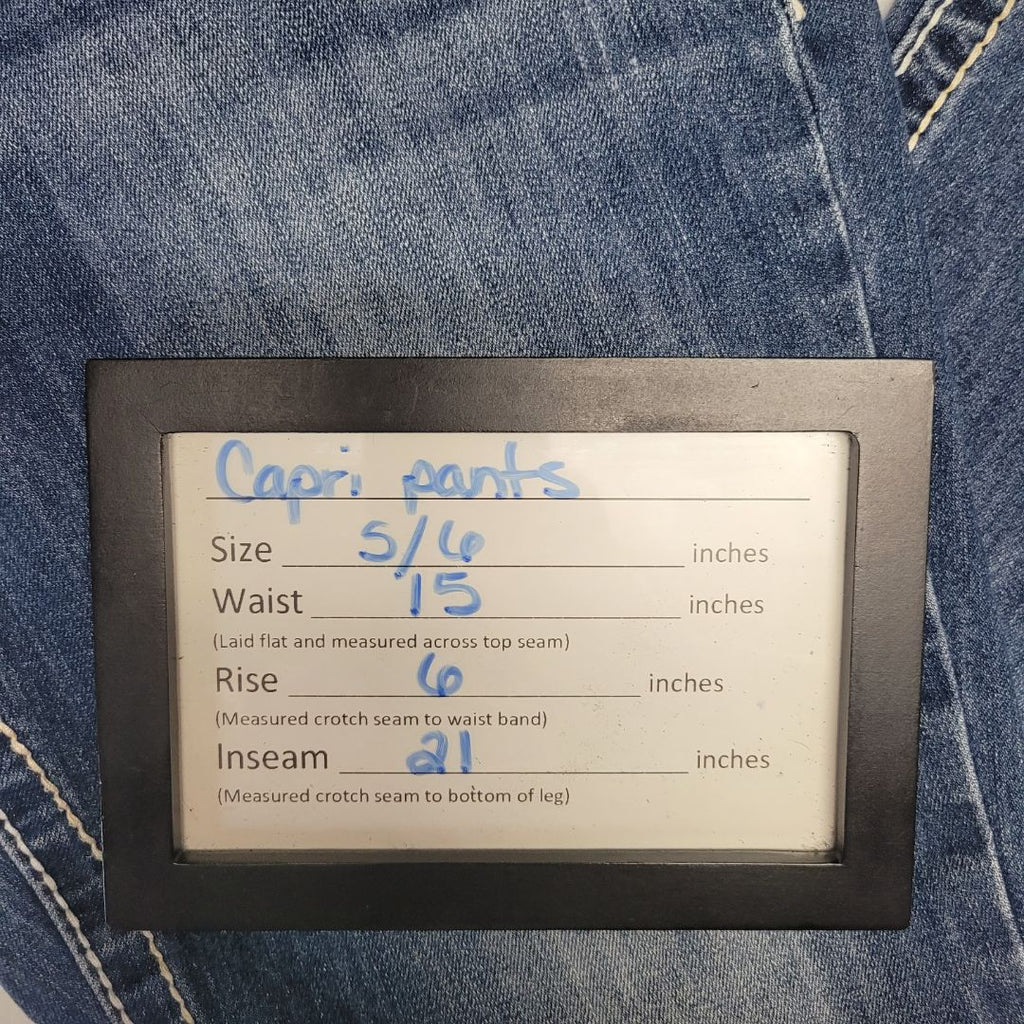 Capri pants
Size 5/6 inches
Waist 15 inches
(Laid flat and measured across top seam)
Rise 6 inches
(Measured crotch seam to waist band)
Inseam 21 inches
(Measured crotch seam to bottom of leg)